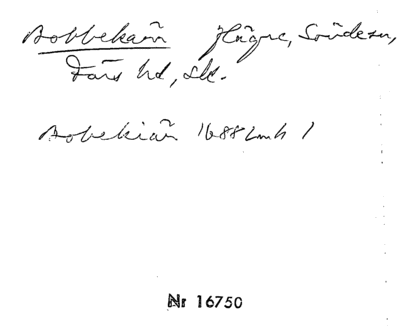 Bobbekärr Hägre, Sövdesn,
Färs hd, Sk.
Bobekiär 1688 Lmh 1
Nr 16750